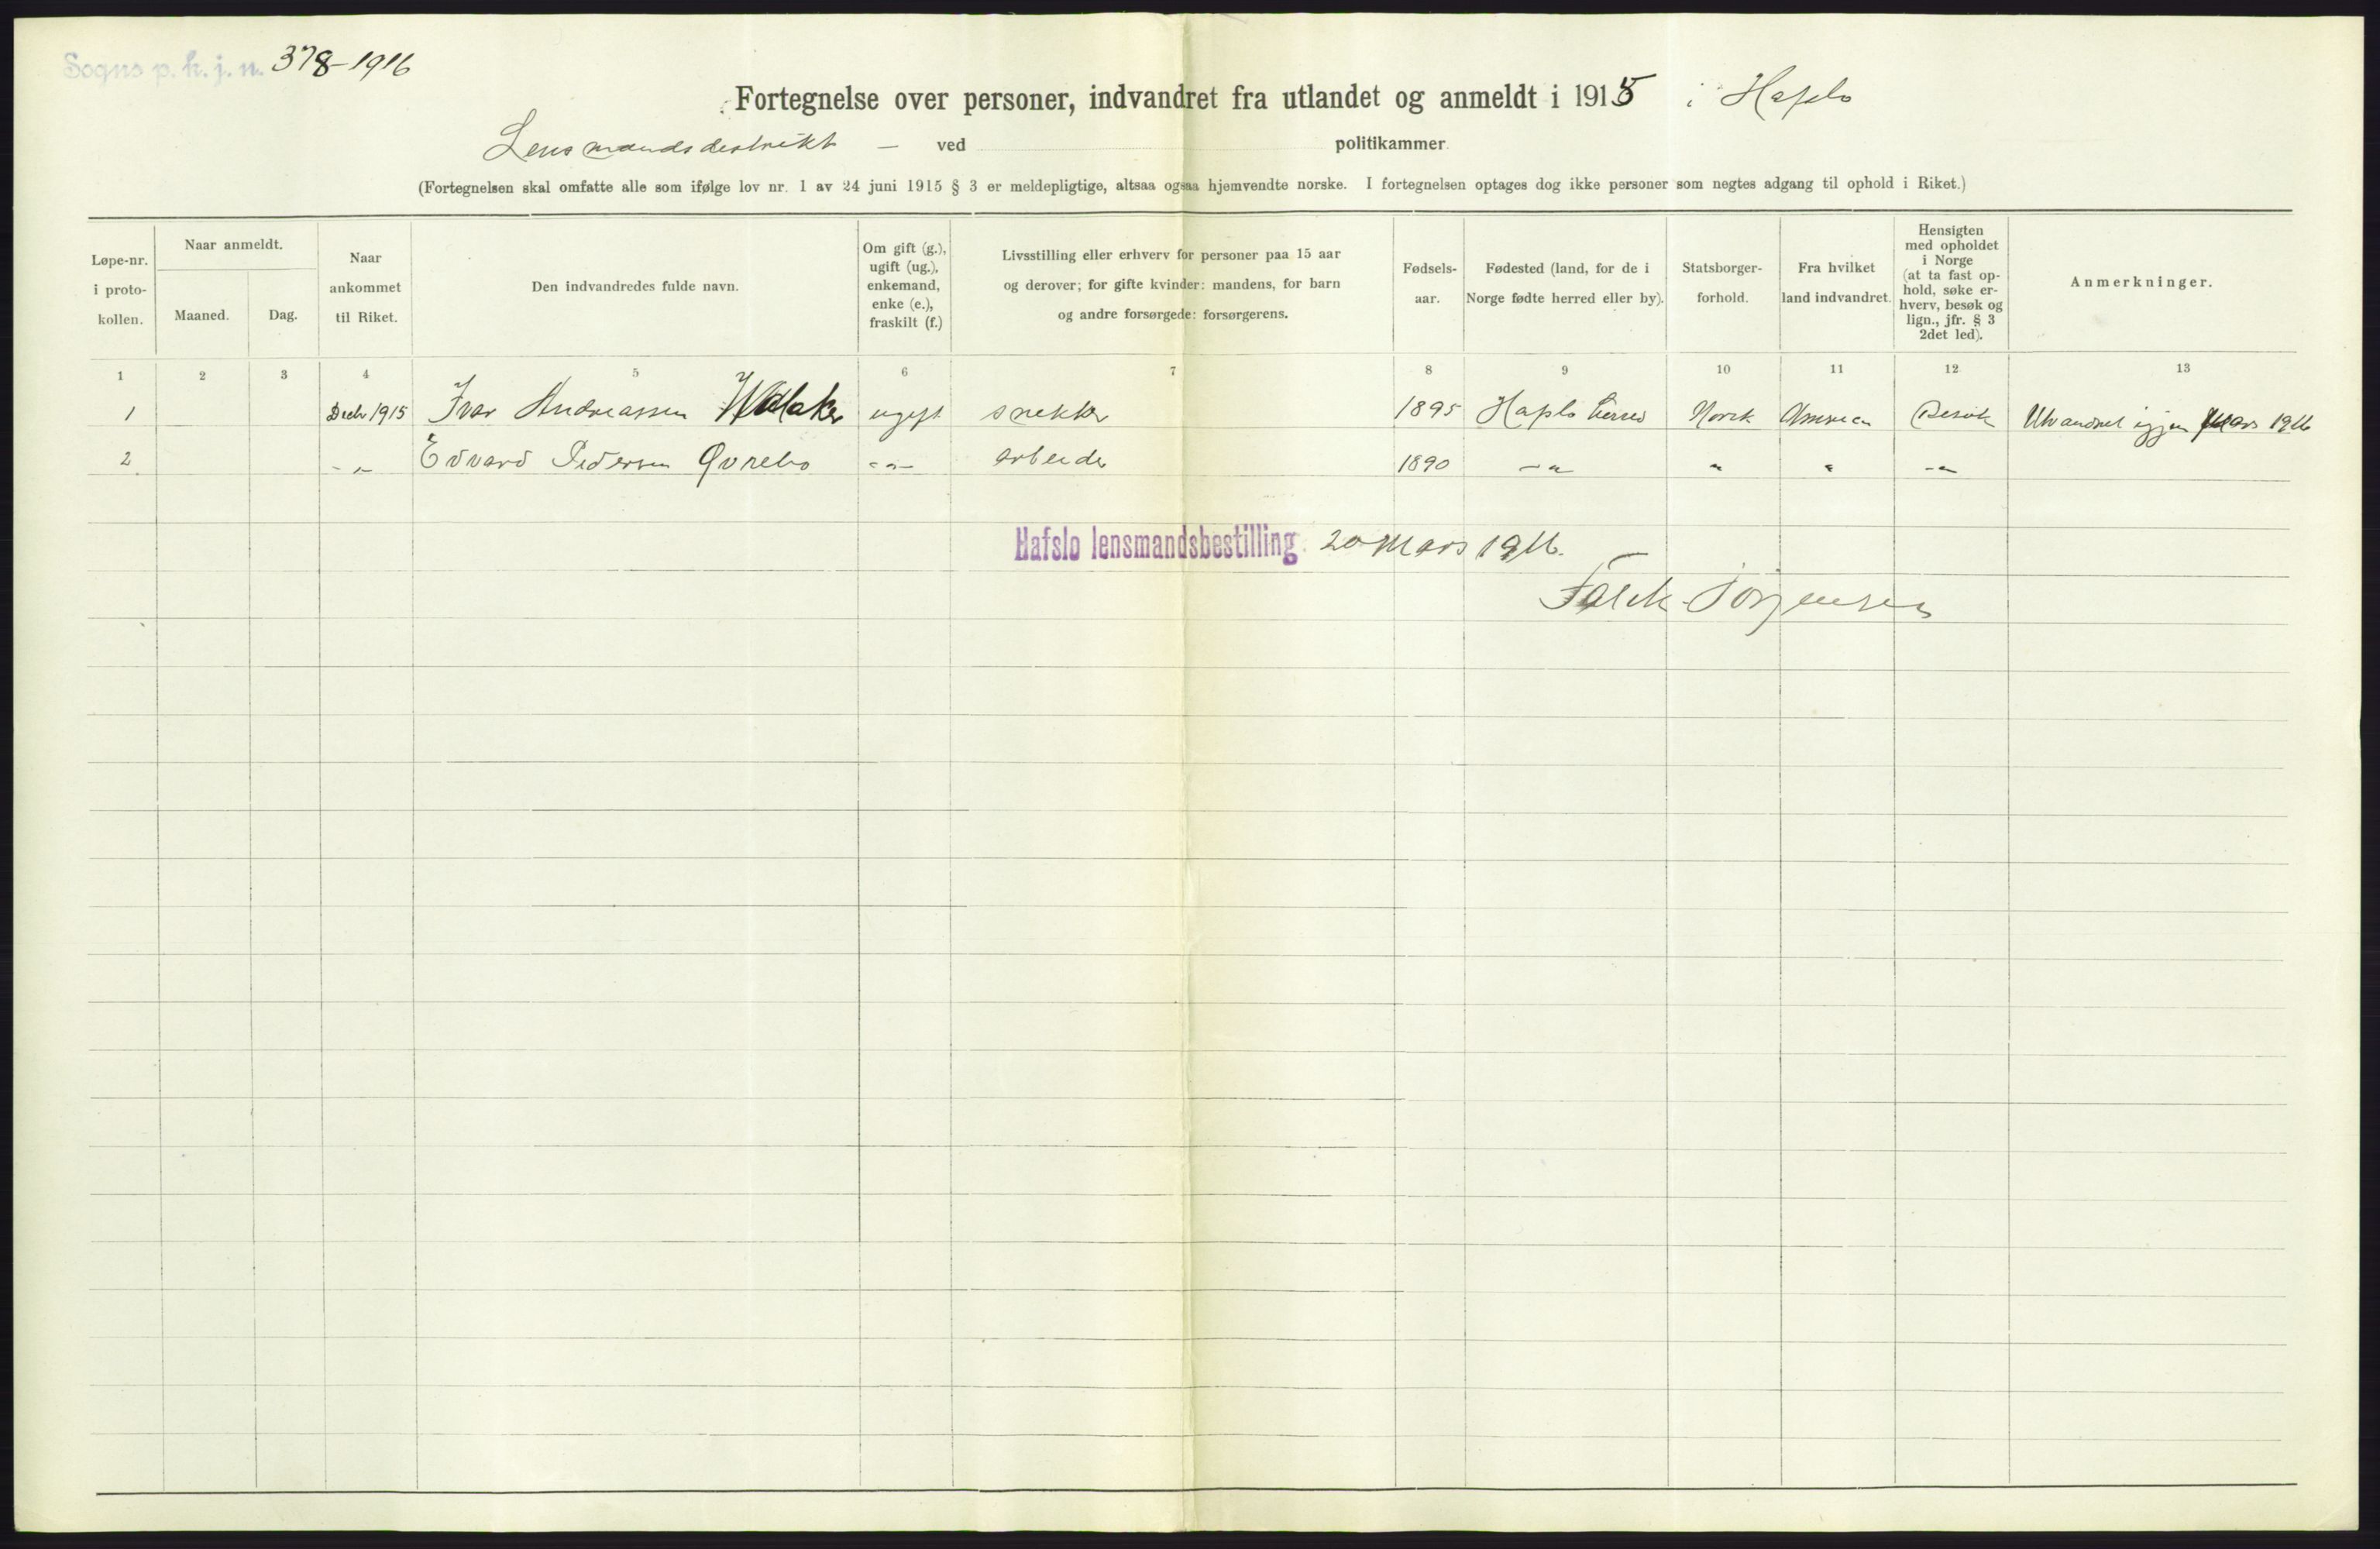 Sogns p. k. j. n. 378-1916
Fortegnelse over personer, indvandret fra utlandet og anmeldt i 1915 i Hafslo
Lensmandsdestrikt — ved politikammer
(Fortegnelsen skal omfatte alle som ifølge lov nr. 1 av 24 juni 1915 § 3 er meldepligtige, altsaa ogsaa hjemvendte norske. I fortegnelsen optages dog ikke personer som negtes adgang til ophold i Riket.)
Løpe-nr.
i proto-
kollen.
Naar anmeldt.
Maaned.
Dag.
Naar
ankommet
til Riket.
Den indvandredes fulde navn.
Om gift (g.),
ugift (ug.),
enkemand,
enke (e.),
fraskilt (f.)
Livsstilling eller erhverv for personer paa 15 aar
og derover; for gifte kvinder: mandens, for barn
og andre forsørgede: forsørgerens.
Fødsels-
aar.
Fødested (land, for de i
Norge fødte herred eller by).
Statsborger-
forhold.
Fra hvilket
land indvandret.
Hensigten
med opholdet
i Norge
(at ta fast op-
hold, søke er-
hverv, besøk og
lign., jfr. § 3
2det led).
Anmerkninger.
1 2 3 4 5 6 7 8 9 10 11 12 13
1 Decbr 1915 Ivar Andreassen Walaker ugift snekker 1895 Hafslo herred Norsk America Besøk Utvandret igjen Mars 1916
2 -"- Edvard Pedersen Qvrebo -"- arbeider 1890 -"- " " -"-
Hafslo lensmandsbestilling 20 Mars 1916.
Falck-Jørgensen